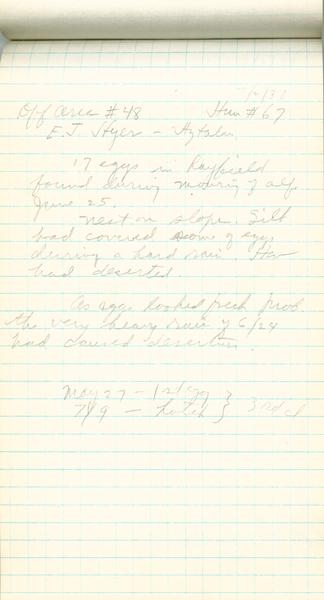 Off Area #48 Hen #67
E.J. Hyer - Aztalan
17 eggs in hayfield
found during mowing of alf.
June 25.
Nest on slope. Silt
had covered some of eggs
during a hard rain. Hen
had deserted.
As eggs looked fresh prob.
the very heavy rain of 6/24
had caused desertion.
May 27 - 1st egg }
7/9 - hatch } 3rd cl